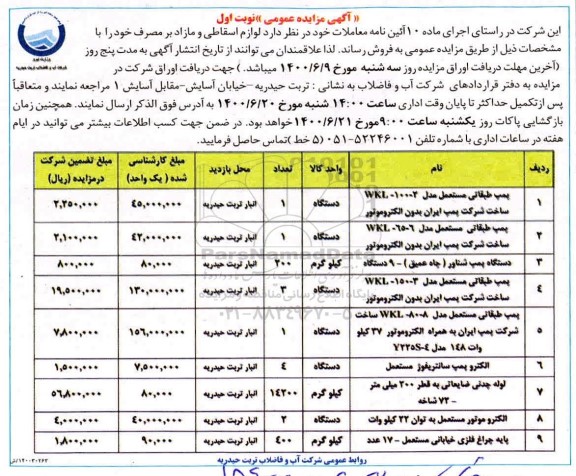 « آگهی مزایده عمومی » نوبت اول
این شرکت در راستای اجرای ماده ۱۰ آئین نامه معاملات خود در نظر دارد لوازم اسقاطی و مازاد بر مصرف خود را با
مشخصات ذیل از طریق مزایده عمومی به فروش رساند. لذا علاقمندان می توانند از تاریخ انتشار آگهی به مدت پنج روز
(آخرین مهلت دریافت اوراق مزایده روز سه شنبه مورخ ۱۴۰۰/۶/۹ میباشد. ) جهت دریافت اوراق شرکت در
مزایده به دفتر قراردادهای شرکت آب و فاضلاب به نشانی : تربت حیدریه –خیابان آسایش–مقابل آسایش ۱ مراجعه نمایند و متعاقباً
پس ازتکمیل حداکثر تا پایان وقت اداری ساعت ۱۴:۰۰ شنبه مورخ ۱۴۰۰/۶/۲۰ به آدرس فوق الذکر ارسال نمایند. همچنین زمان
بازگشایی پاکات روز یکشنبه ساعت ۹:۰۰ مورخ ۱۴۰۰/۶/۲۱ خواهد بود. در ضمن جهت کسب اطلاعات بیشتر می توانید در ایام
هفته در ساعات اداری با شماره تلفن ۵۲۲۴۶۰۰۱-۰۵۱ (۵ خط )تماس حاصل فرمایید.
ردیف نام واحد کالا تعداد محل بازدید مبلغ کارشناسی شده ( یک واحد) مبلغ تضمین شرکت درمزایده (ریال)
۱ پمپ طبقاتی مستعمل مدل WKL -۱۰۰-۲ ساخت شرکت پمپ ایران بدون الکتروموتور دستگاه ۱ انبار تربت حیدریه ۴۵,۰۰۰,۰۰۰ ۲,۲۵۰,۰۰۰
۲ پمپ طبقاتی مستعمل مدل WKL -۶۵-۶ ساخت شرکت پمپ ایران بدون الکتروموتور دستگاه ۱ انبار تربت حیدریه ۴۲,۰۰۰,۰۰۰ ۲,۱۰۰,۰۰۰
۳ دستگاه پمپ شناور ( چاه عمیق ) – ۹ دستگاه کیلو گرم ۲۰۰ انبار تربت حیدریه ۸۰,۰۰۰ ۸۰۰,۰۰۰
۴ پمپ طبقاتی مستعمل مدل WKL -۱۵۰-۳ ساخت شرکت پمپ ایران بدون الکتروموتور دستگاه ۳ انبار تربت حیدریه ۱۳۰,۰۰۰,۰۰۰ ۱۹,۵۰۰,۰۰۰
۵ پمپ طبقاتی مستعمل مدل WKL -۸۰-۸ ساخت شرکت پمپ ایران به همراه الکتروموتور ۳۷ کیلو وات ۱۴۸ مدل Y۲۲۵S-۴ دستگاه ۱ انبار تربت حیدریه ۱۵۶,۰۰۰,۰۰۰ ۷,۸۰۰,۰۰۰
۶ الکترو پمپ سانتریفوژ مستعمل دستگاه ۴ انبار تربت حیدریه ۷,۵۰۰,۰۰۰ ۱,۵۰۰,۰۰۰
۷ لوله چدنی ضایعاتی به قطر ۲۰۰ میلی متر – ۷۲ شاخه کیلو گرم ۱۴۲۰۰ انبار تربت حیدریه ۸۰,۰۰۰ ۵۶,۸۰۰,۰۰۰
۸ الکترو موتور مستعمل به توان ۲۲ کیلو وات دستگاه ۲ انبار تربت حیدریه ۴۰,۰۰۰,۰۰۰ ۴,۰۰۰,۰۰۰
۹ پایه چراغ فلزی خیابانی مستعمل – ۱۷ عدد کیلو گرم ۴۰۰ انبار تربت حیدریه ۹۰,۰۰۰ ۱,۸۰۰,۰۰۰
روابط عمومی شرکت آب و فاضلاب تربت حیدریه